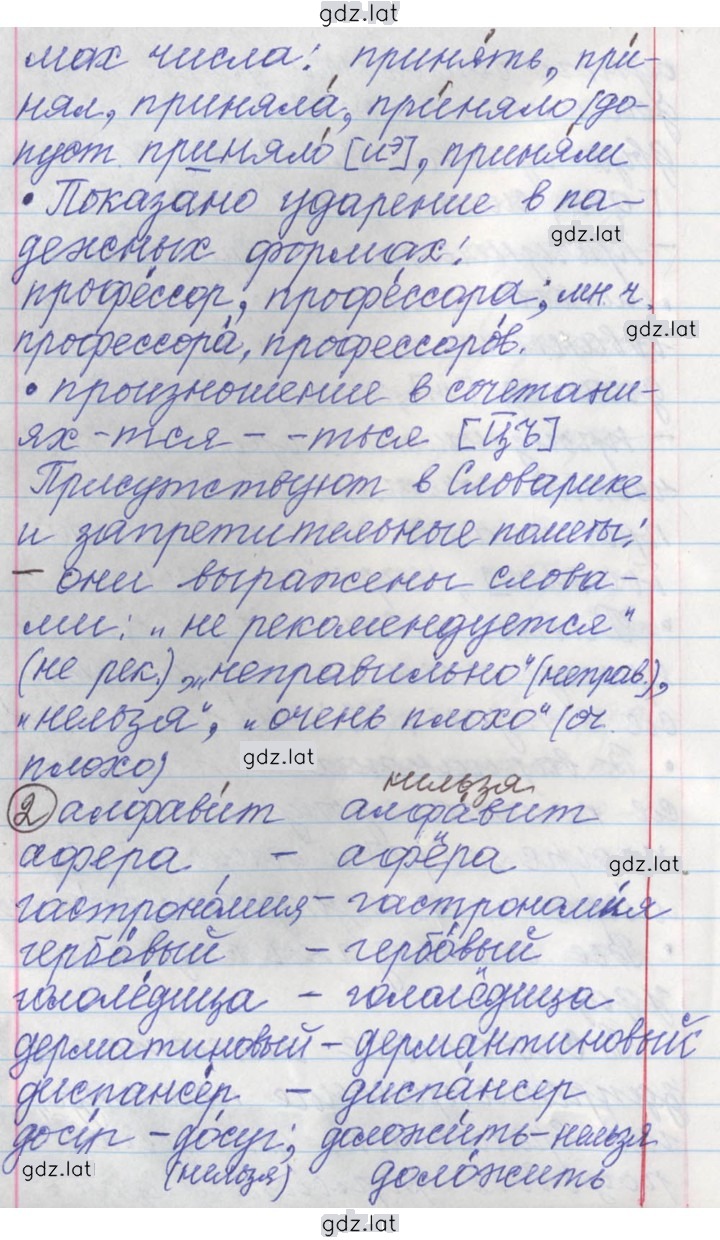 gdz.lat
мах числа: приня́ть, при́-
нял, приняла́, при́няло (до-
пуст приня́ло [иэ], при́няли
• Пока́зано ударение в па-
gdz.lat
дежных формах:
профе́ссор, профе́ссора; мн.ч.
gdz.lat
профессора́, профессоро́в.
• произношение в сочетани-
ях -тся - -ться [ц̅ъ]
Присутствуют в Словарике
и запретительные пометы:
– они выражены слова-
ми: „не рекомендуется"
(не рек.), „неправильно" (неправ.),
„нельзя", „очень плохо" (оч.
gdz.lat
плохо)
нельзя
2 алфави́т алфа́вит
афера – афёра
gdz.lat
гастроно́мия – гастрономи́я
ге́рбовый – гербо́вый
гололе́дица – гололёдица
дерматиновый – дермантиновый
диспансе́р – диспа́нсер
досу́г – до́суг; доложи́ть – нельзя
gdz.lat
(нельзя) доло́жить
gdz.lat